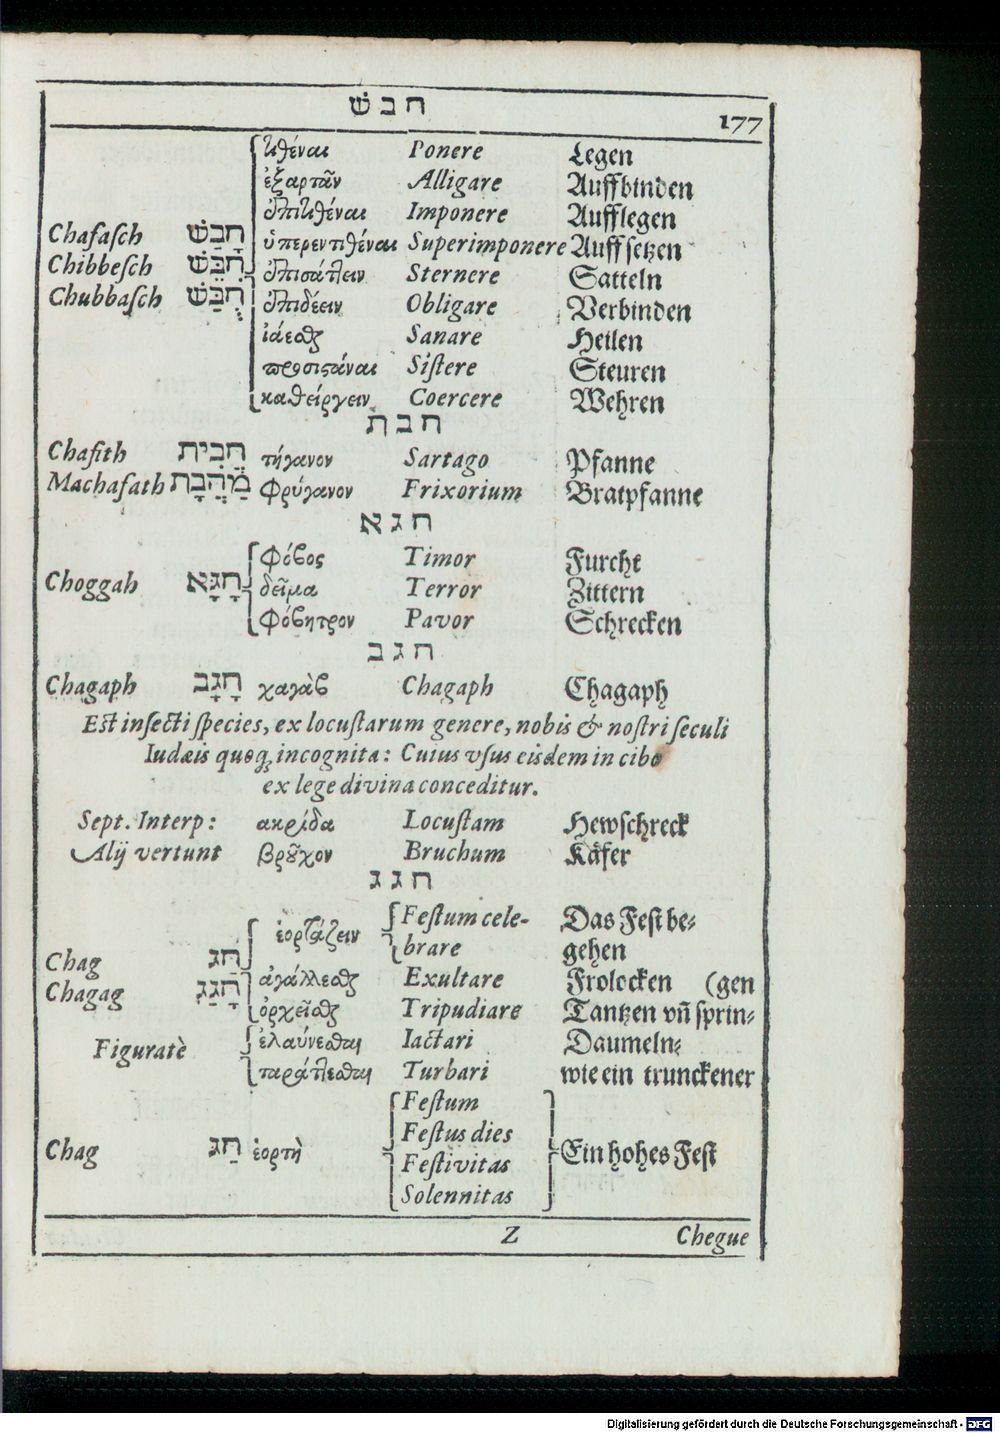 חבש
177
τιθέναι Ponere Legen
ἐξαρτᾶν Alligare Auffbinden
ἐπιτιθέναι Imponere Aufflegen
Chafasch חָבַשׁ ὑπερεντιθέναι Superimponere Auffsetzen
Chibbesch חִבֵּשׁ ἐπισάττειν Sternere Satteln
Chubbasch חֻבַּשׁ ἐπιδέειν Obligare Verbinden
ἰάεσθαι Sanare Heilen
προσιστάναι Sistere Steuren
καθείργειν Coercere Wehren
חבת
Chafith חֲבִית τήγανον Sartago Pfanne
Machafath מַחֲבָת φρύγανον Frixorium Bratpfanne
חגא
φόβος Timor Furcht
Choggah חָגָּא δεῖμα Terror Zittern
φόβητρον Pavor Schrecken
חגב
Chagaph חָגָב χαγὰβ Chagaph Chagaph
Est insecti species, ex locustarum genere, nobis & nostri seculi
Iudæis quoq; incognita: Cuius vsus eisdem in cibo
ex lege divina conceditur.
Sept. Interp: ακρίδα Locustam Hewschreck
Alij vertunt βροῦχον Bruchum Käfer
חגג
ἑορτάζειν Festum cele- Das Fest be-
brare gehen
Chag חַג ἀγάλλεσθαι Exultare Frolocken (gen
Chagag חָגַג ὀρχεῖσθαι Tripudiare Tantzen vñ sprin-
Figuratè ἐλαύνεσθαι Iactari Daumeln-
ταράττεσθαι Turbari wie ein trunckener
Festum
Festus dies
Chag חַג ἑορτὴ Ein hohes Fest
Festivitas
Solennitas
Z Chegue
Digitalisierung gefördert durch die Deutsche Forschungsgemeinschaft - DFG